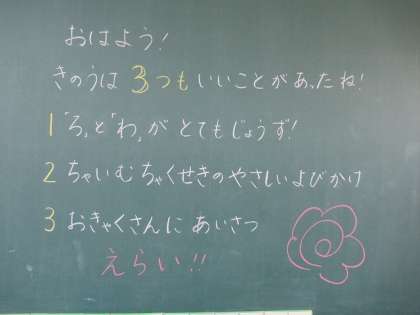 おはよう!
きのうは3つもいいことがあったね!
1「ろ」と「わ」が とてもじょうず!
2 ちゃいむ ちゃくせきのやさしいよびかけ
3 おきゃくさんに あいさつ
えらい!!